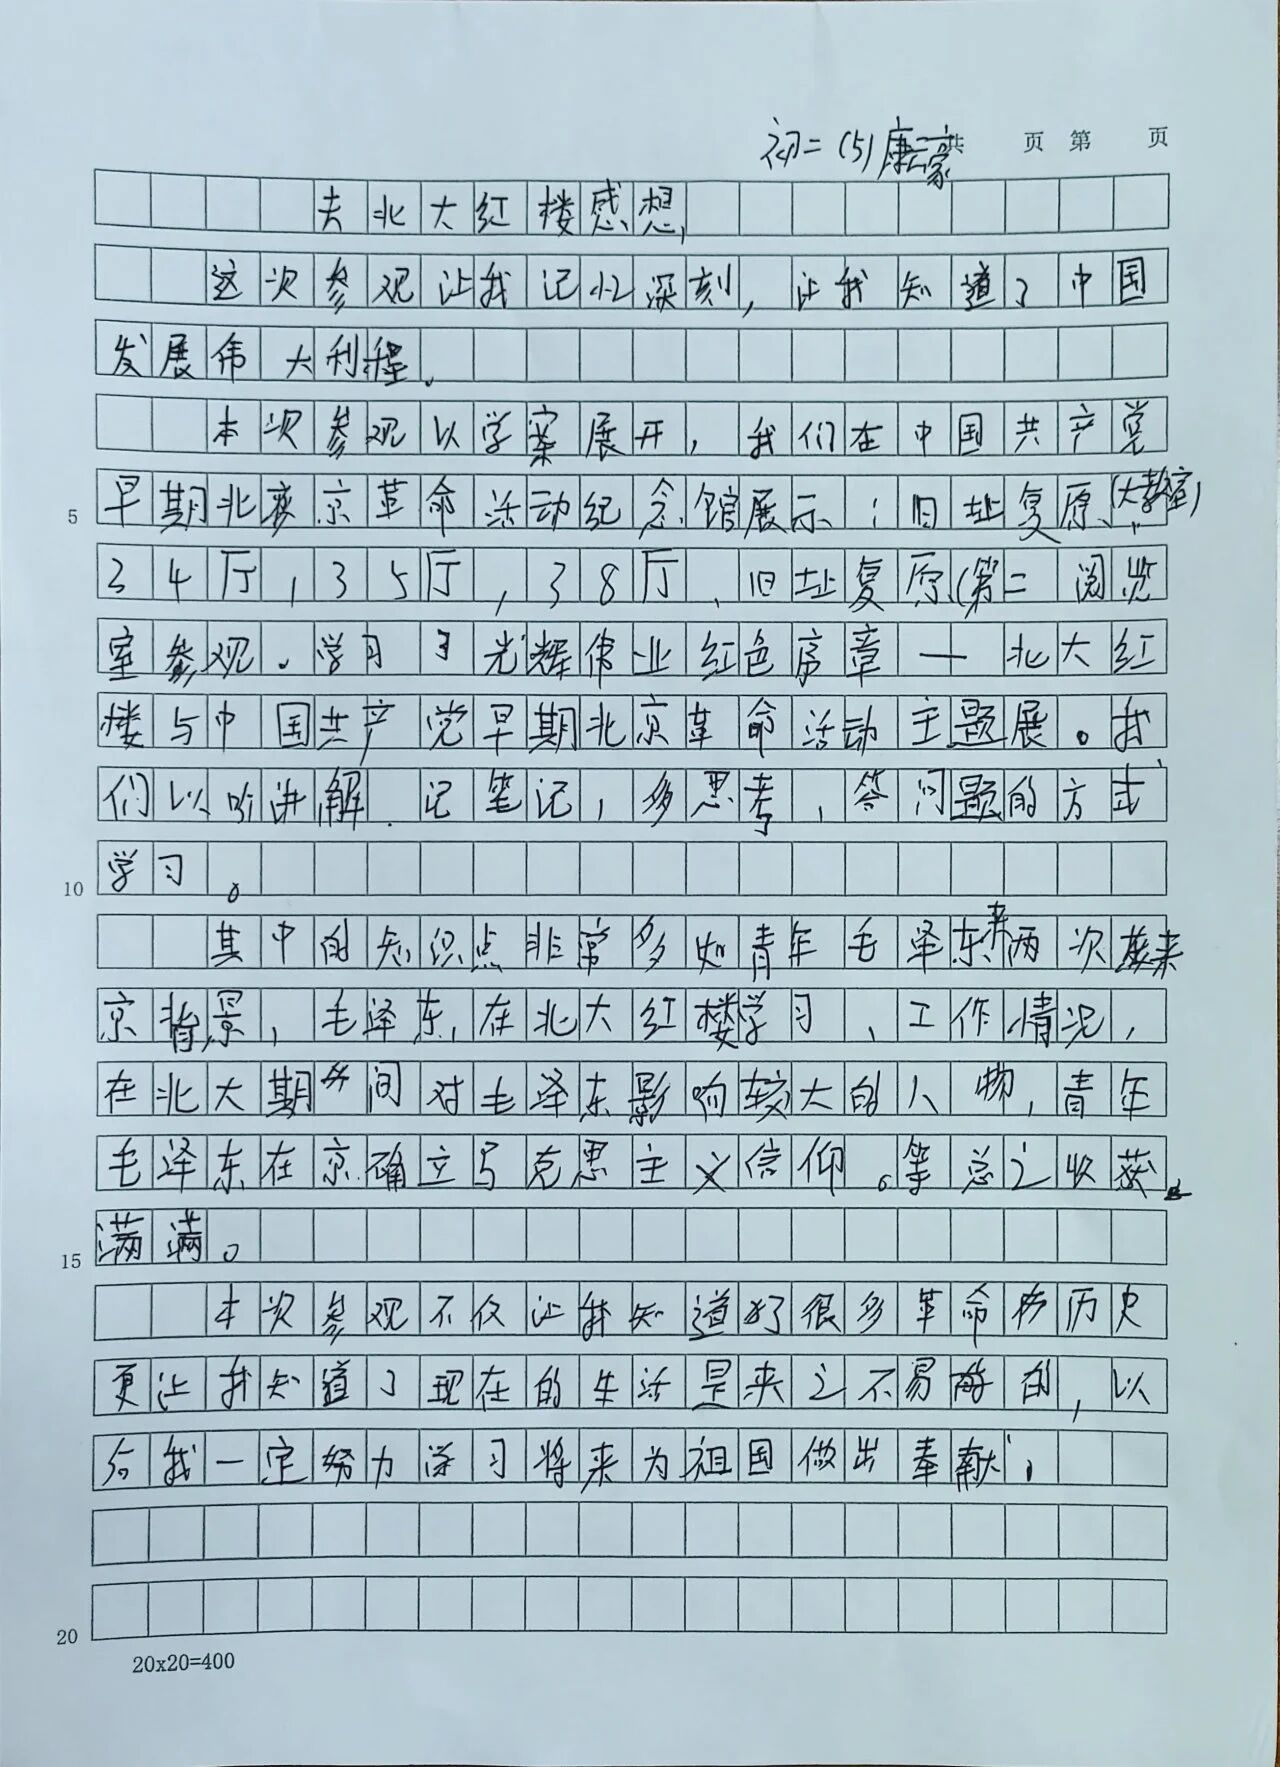 初二(5)康豪 共 页 第 页
去北大红楼感想
这次参观让我记忆深刻,让我知道了中国
发展伟大利程。
本次参观以学案展开,我们在中国共产党
5 早期北京革命活动纪念馆展示:旧址复原(大教室)、
34厅,35厅,38厅、旧址复原(第二阅览
室参观。学习了光辉伟业红色序章—北大红
楼与中国共产党早期北京革命活动主题展。我
们以听讲解、记笔记,多思考,答问题的方式
10 学习。
其中的知识点非常多如青年毛泽东来两次来
京背景,毛泽东在北大红楼学习、工作情况,
在北大期间对毛泽东影响较大的人物,青年
毛泽东在京确立马克思主义信仰。等总之收获
15 满满。
本次参观不仅让我知道了很多革命历史
更让我知道了现在的生活是来之不易的,以
后我一定努力学习将来为祖国做出奉献。
20
20x20=400